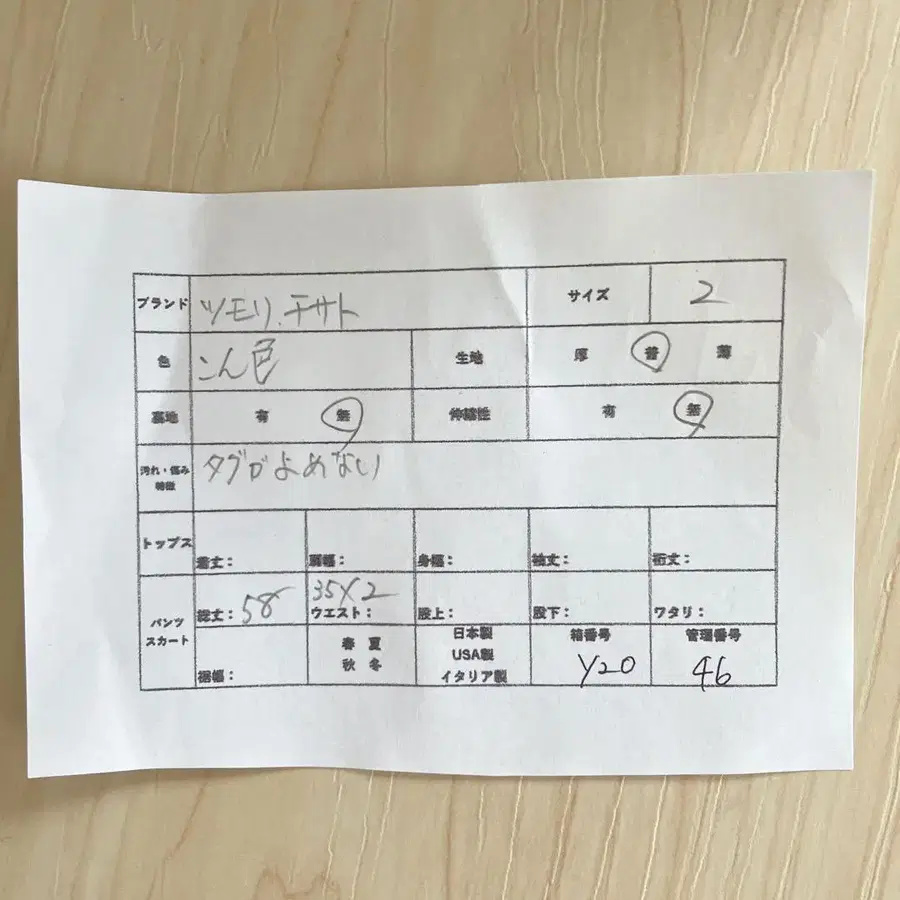 ブランド ツモリ.チサト サイズ 2
色 こん色 生地 厚 普 薄
裏地 有 無 伸縮性 有 無
汚れ・傷み
特徴 タグがよめない
トップス 着丈: 肩幅: 身幅: 袖丈: 裄丈:
パンツ
スカート
総丈: 58 ウエスト: 35×2 股上: 股下: ワタリ:
裾幅:
春 夏
秋 冬
日本製
USA製
イタリア製
箱番号
Y20
管理番号
46